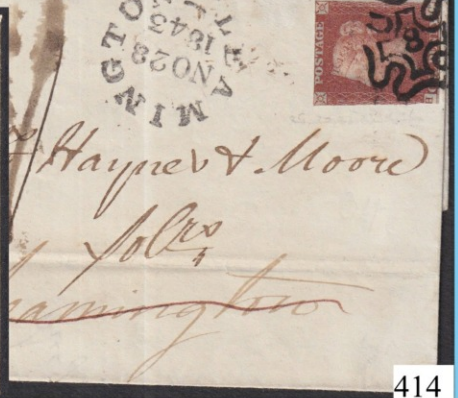 AMINGTO
NO 28
1843
POSTAGE
8
B
Haynes & Moore
Solrs
Leamington
414